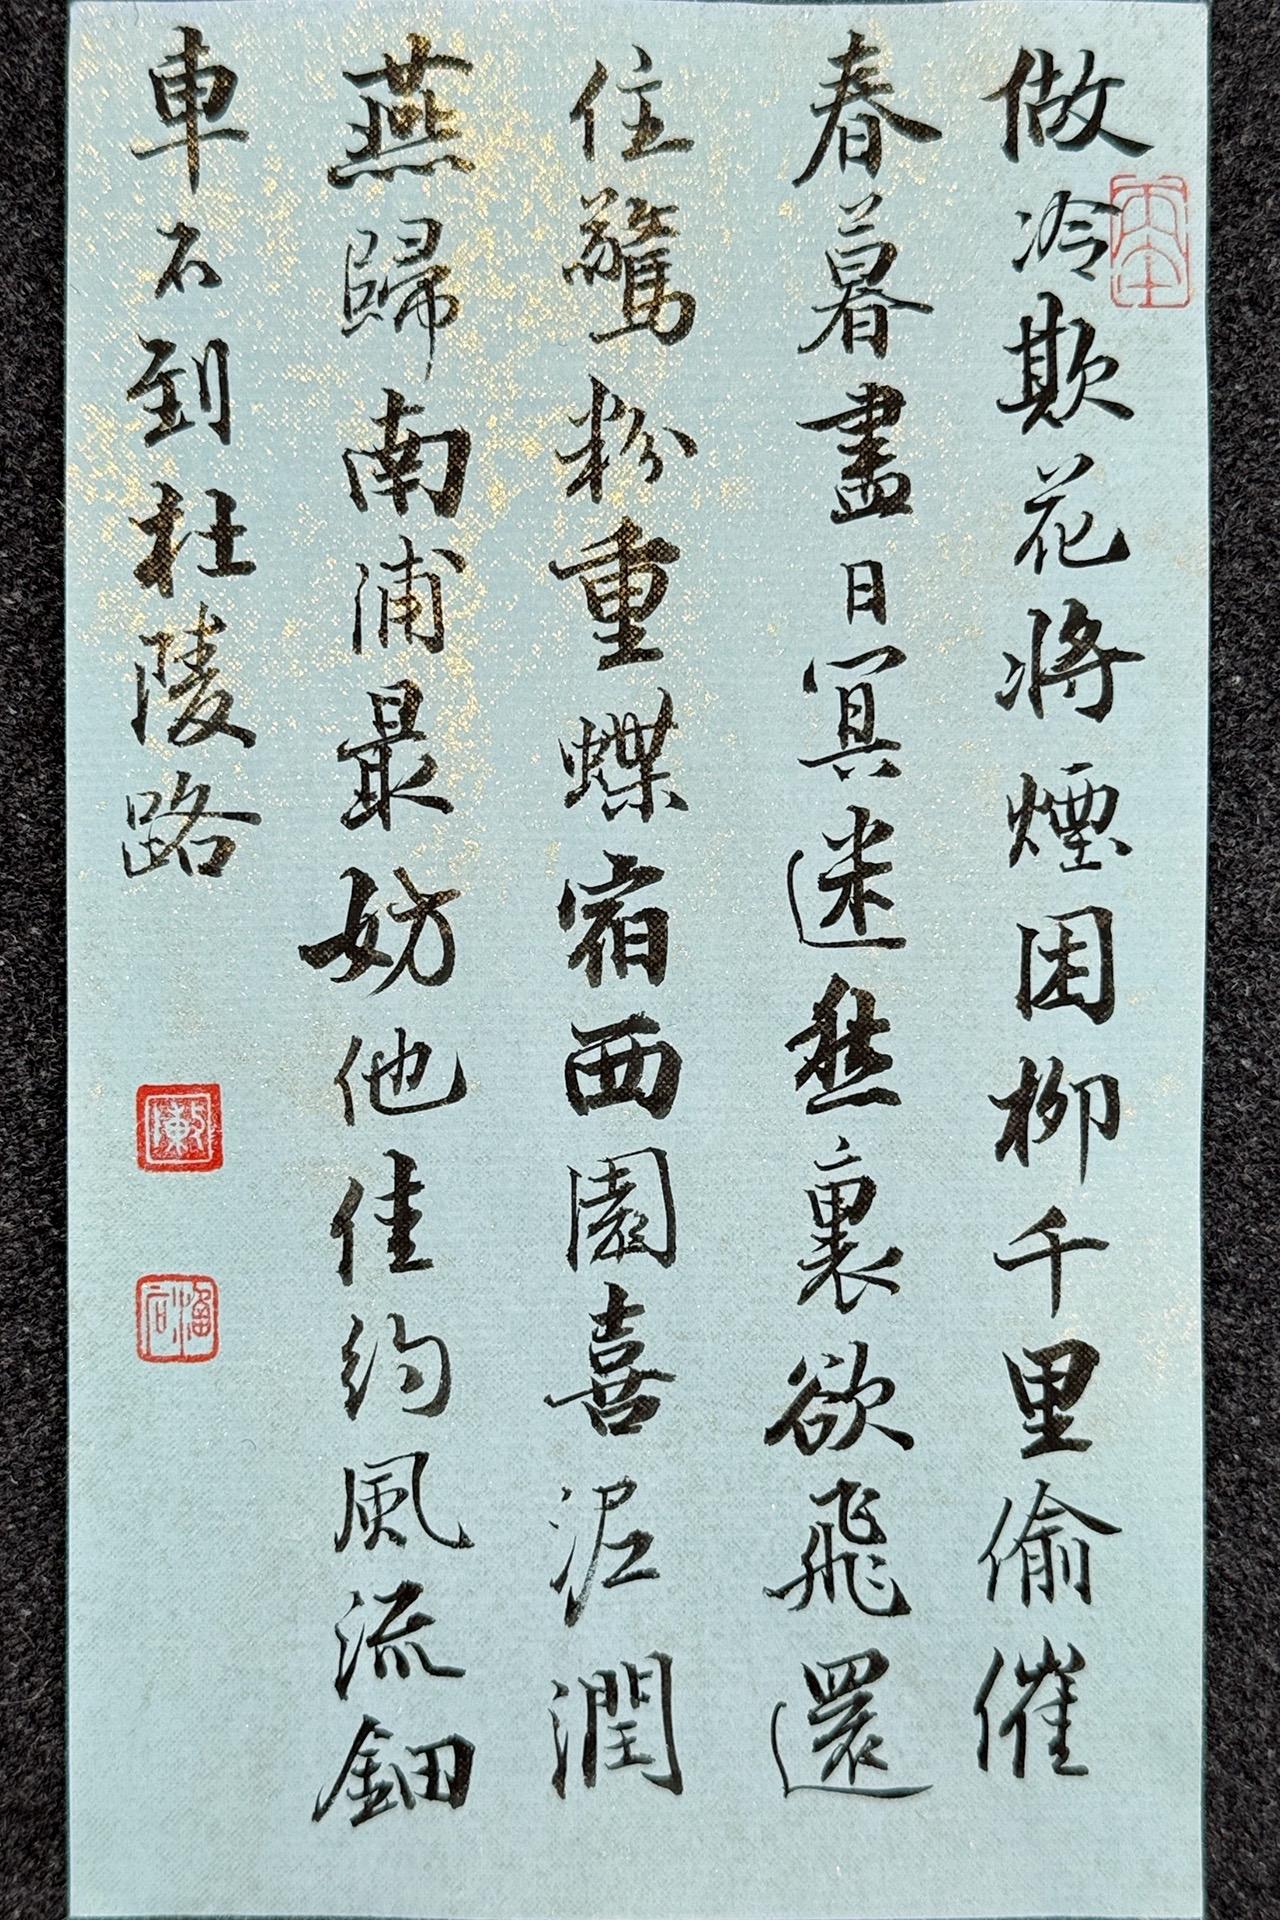 做冷欺花將煙困柳千里偷催
春暮盡日冥迷愁裏欲飛還
住驚粉重蝶宿西園喜泥潤
燕歸南浦最妨他佳約風流鈿
車不到杜陵路